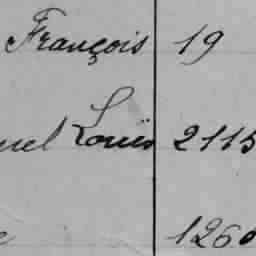 François 19
uel Louis 2115
e 1260